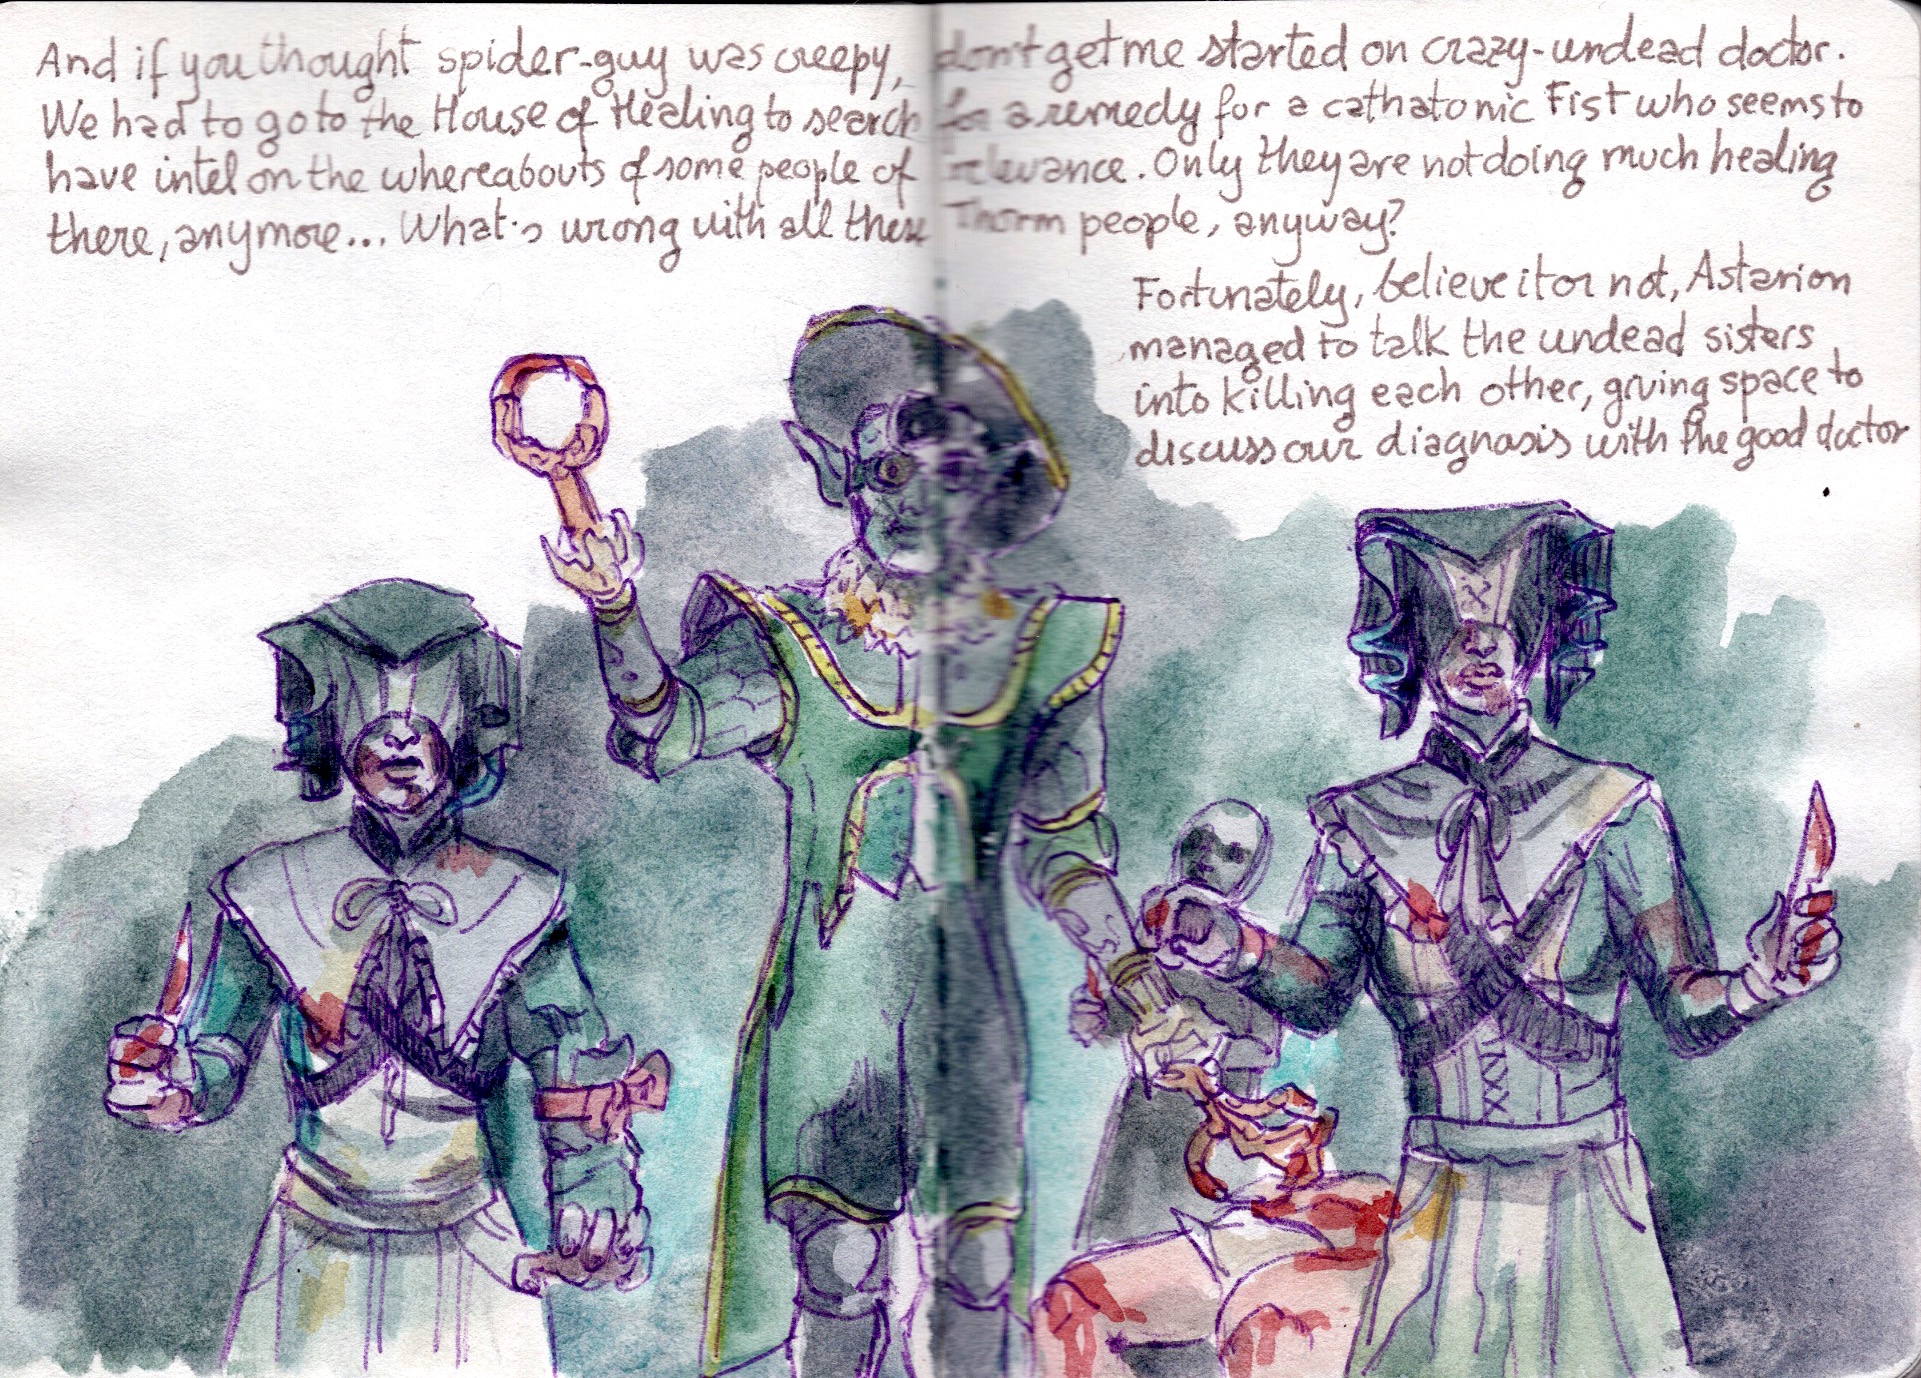 And if you thought spider-guy was creepy, don't get me started on crazy-undead doctor.
We had to go to the House of Healing to search for a remedy for a cathatonic Fist who seems to
have intel on the whereabouts of some people of relevance. Only they are not doing much healing
there, anymore... What's wrong with all these Thorm people, anyway?
Fortunately, believe it or not, Astarion
managed to talk the undead sisters
into killing each other, giving space to
discuss our diagnasis with the good doctor
.